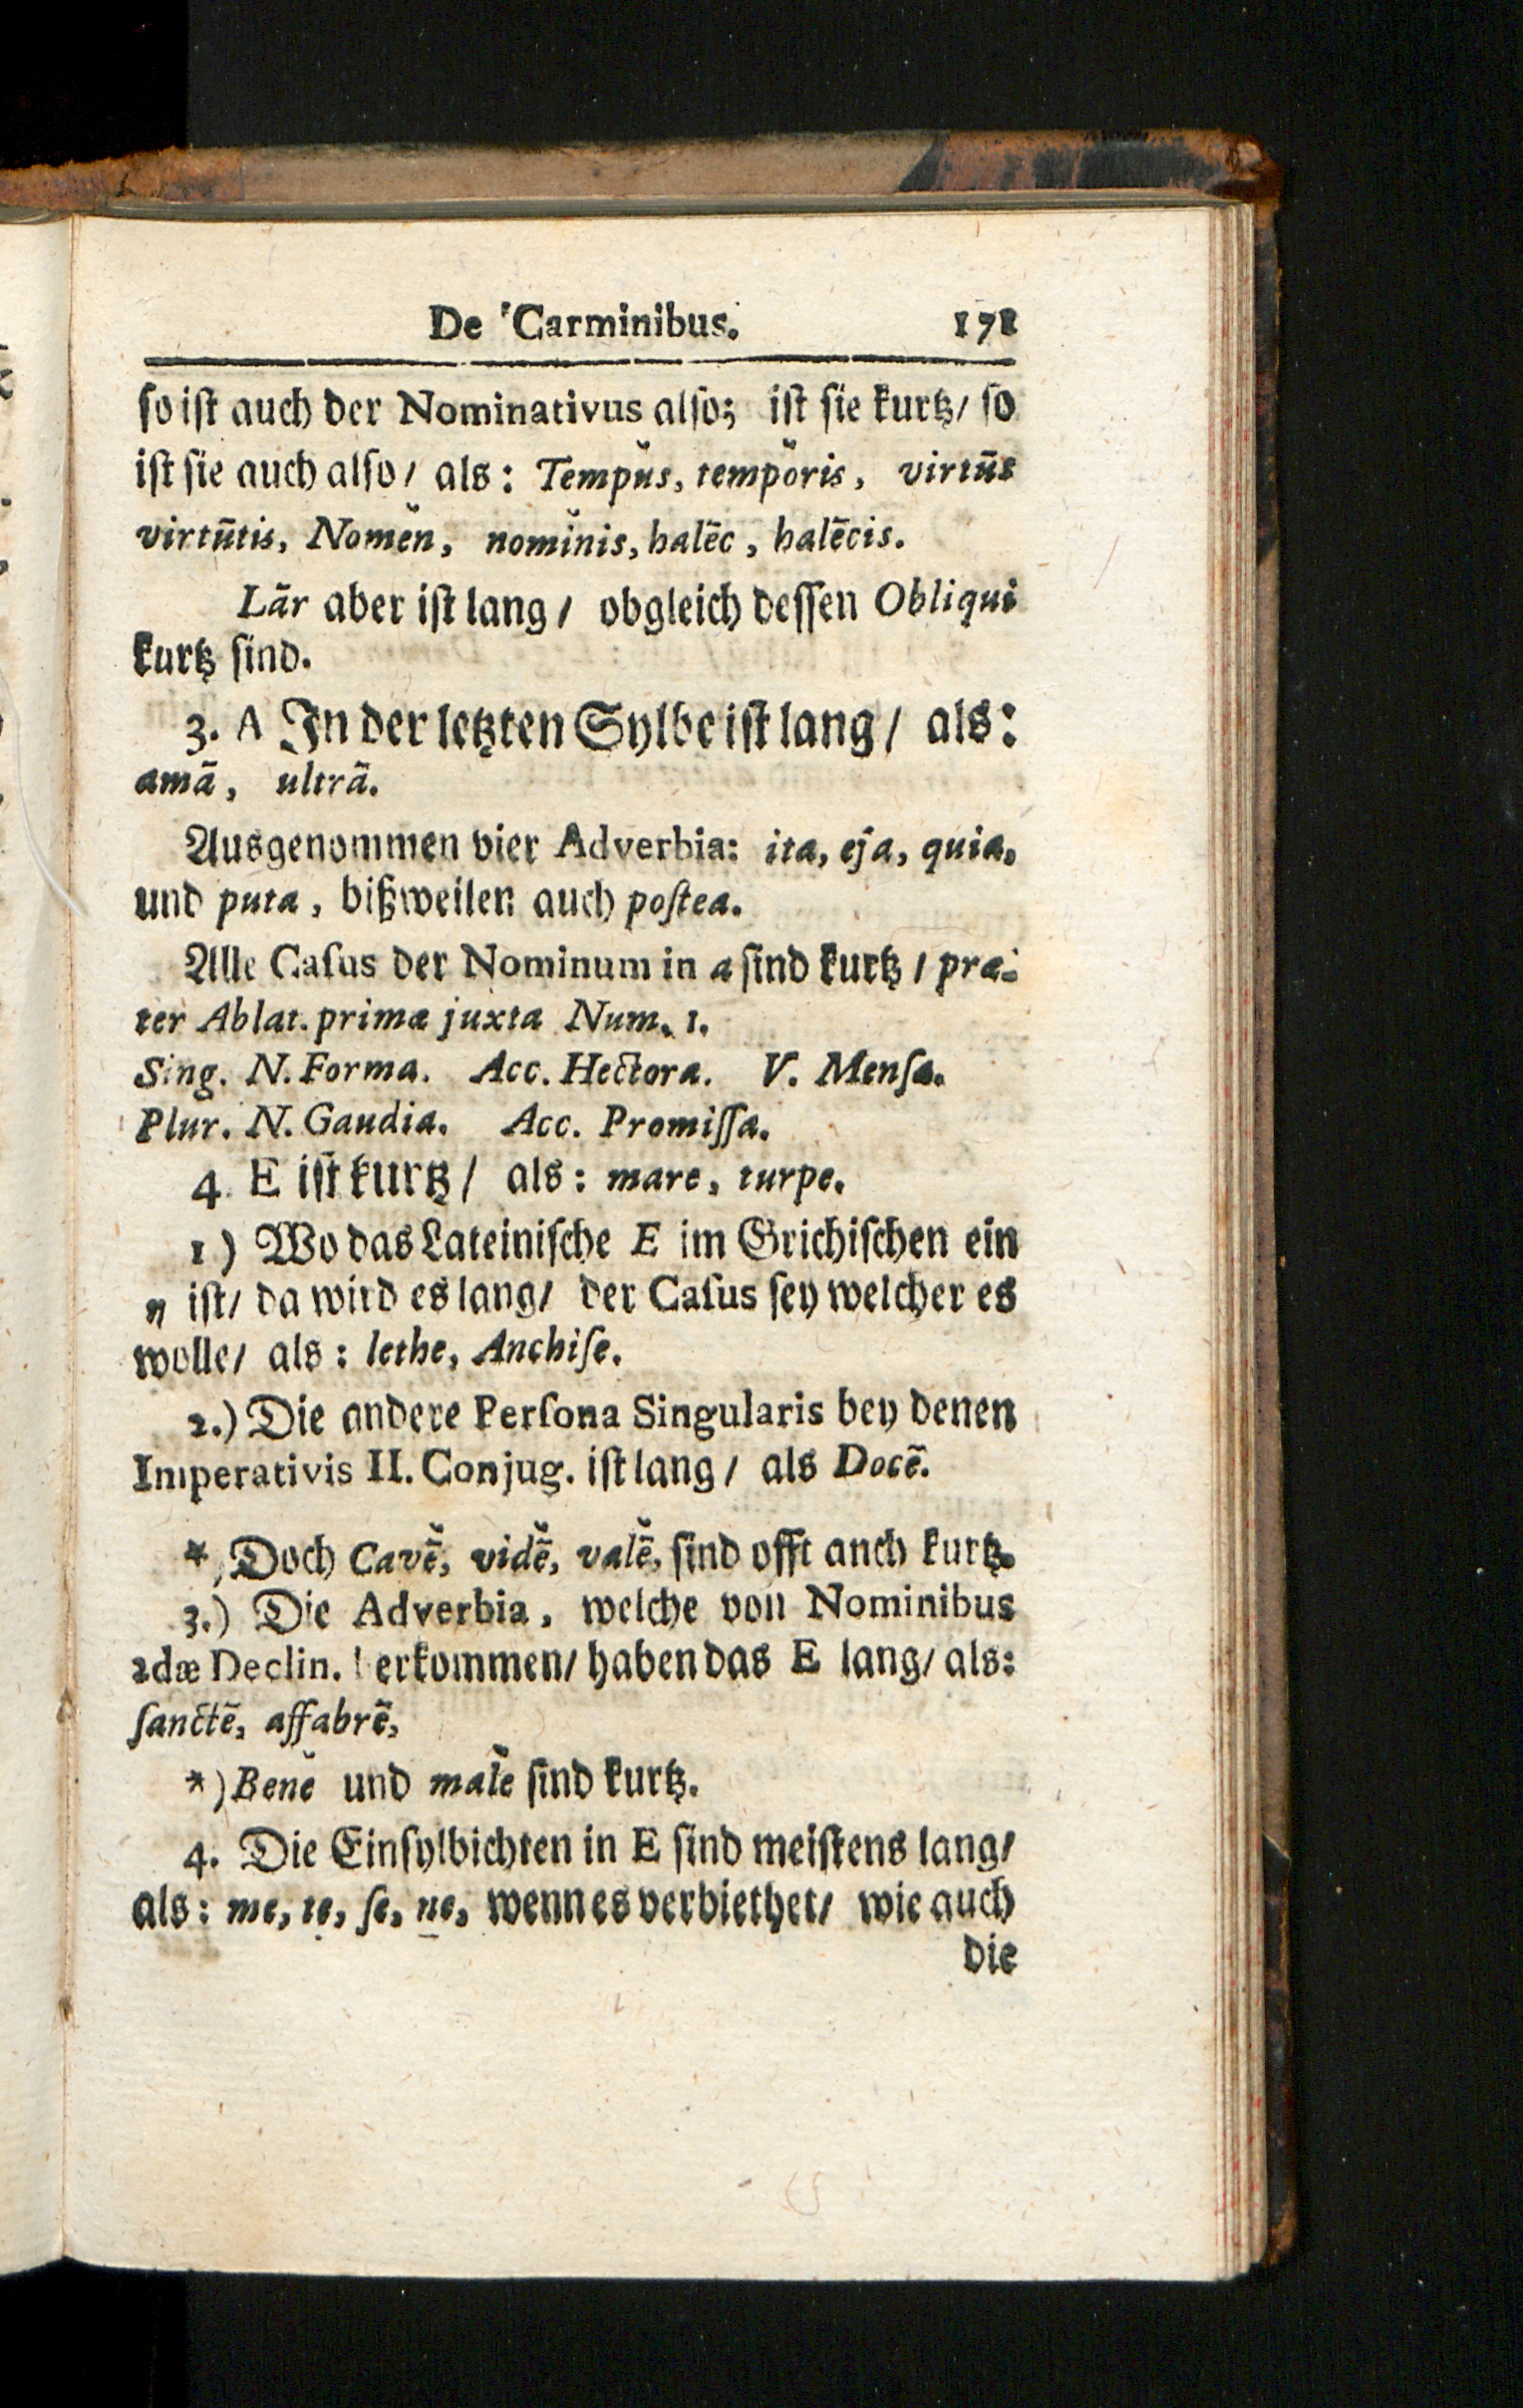 De Carminibus. 171
so ist auch der Nominativus also; ist sie kurtz/ so
ist sie auch also/ als: Tempŭs, tempŏris, virtūs
virtūtis, Nomĕn, nomĭnis, halēc, halēcis.
Lār aber ist lang/ obgleich dessen Obliqui
kurtz sind.
3. A In der letzten Sylbe ist lang/ als:
amā, ultrā.
Ausgenommen vier Adverbia: ita, eja, quia,
und puta, bißweilen auch postea.
Alle Casus der Nominum in a sind kurtz/ præ-
ter Ablat. primæ juxta Num. 1.
Sing. N. Forma. Acc. Hectora. V. Mensa.
Plur. N. Gaudia. Acc. Promissa.
4. E ist kurtz/ als: mare, turpe.
1) Wo das Lateinische E im Grichischen ein
η ist/ da wird es lang/ der Casus sey welcher es
wolle/ als: lethe, Anchise.
2.) Die andere Persona Singularis bey denen
Imperativis II. Conjug. ist lang/ als Docē.
*) Doch Cavē̆, vidē̆, valē̆, sind offt anch kurtz.
3.) Die Adverbia, welche von Nominibus
2dæ Declin. herkommen/ haben das E lang/ als:
sanctē, affabrē,
*) Benĕ und malĕ sind kurtz.
4. Die Einsylbichten in E sind meistens lang/
als: me, te, se, ne, wenn es verbiethet/ wie auch
die